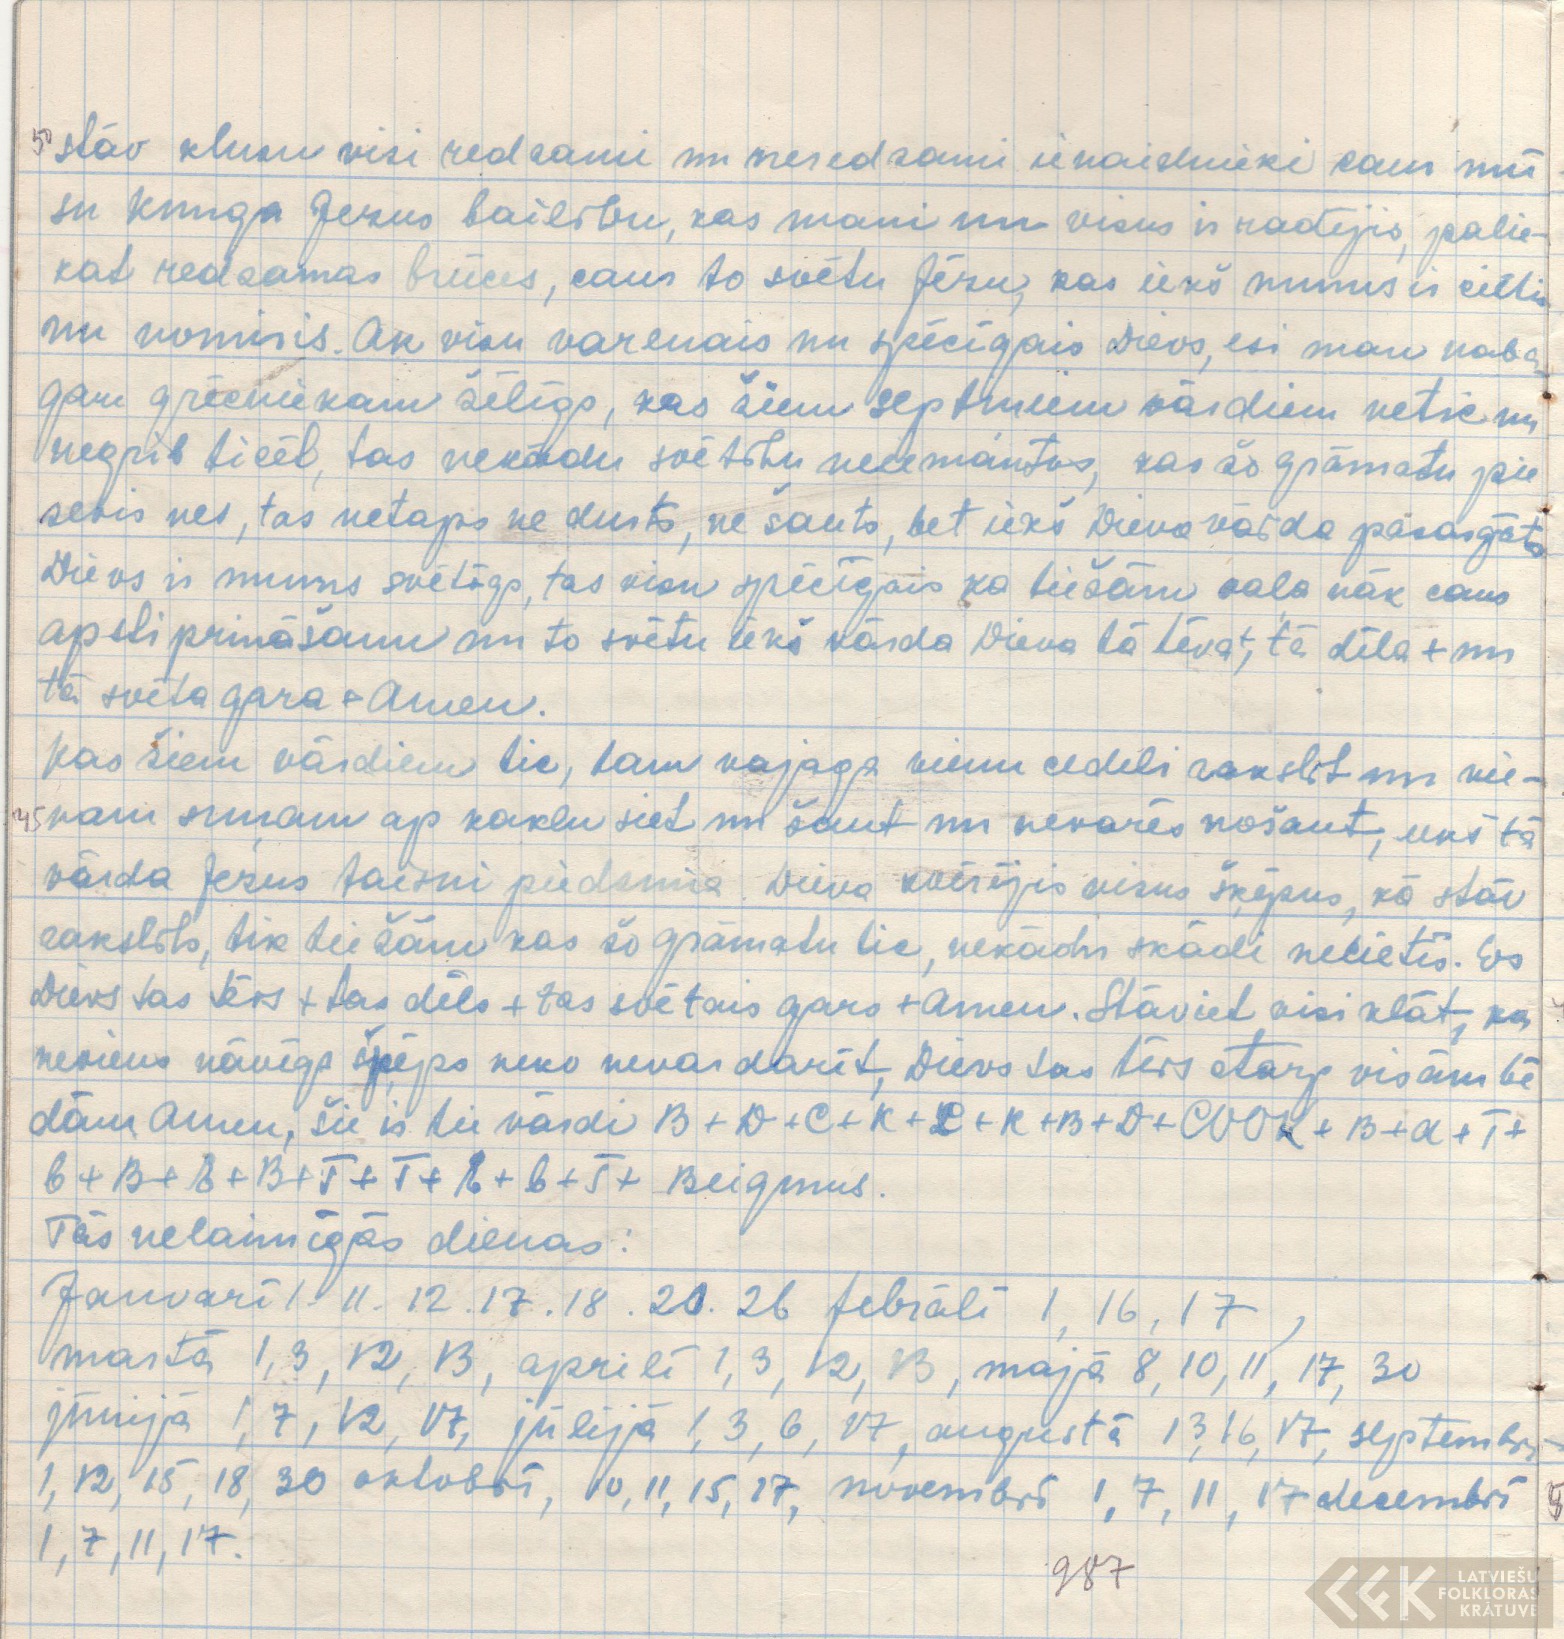 50 stāv klusu visi redzami un neredzami ienaidnieki caur mū-
su kunga Jezus bailību, kas mani un visus ir radījis, palie-
kat redzamas brūces, caur to svētu Jēzu, kas iekš mums ir ciltis
un nomiris. Ak visu varenais un spēcīgais Dievs, esi man naba-
gam grēciniekam žēlīgs, kas šiem septiņiem vārdiem netic un
negrib ticēt, tas nekādu svētību neiemantos, kas šo grāmatu pie
sevis nes, tas netaps ne durts, ne šauts, bet iekš Dieva vārda pasargāts
Dievs ir mums svētīgs, tas visu spēcīgais ka tiešām vala nāk caur
apstiprināšanu un to svētu iekš vārda Dieva tā tēva +, tā dēla + un
tā svēta gara + Amen.
Kas šiem vārdiem tic, tam vajaga vienu cedeli rakstīt un vie-
45 nam sunam ap kaklu siet un šaut un nevarēs nošaut, iekš tā
vārda Jezus taisni piedzima Dieva svērējis visus šķēpus, kā stāv
rakstīts, tik tiešām kas šo grāmatu tic, nekādu skādi nelietīs. Es
Dievs tas tēvs + tas dēls + tas svētais gars + Amen. Stāviet visi klāt, ka
neviens nāvīgs šķēps neko nevar darīt, Dievs tas tēvs starp visām bē
dām Amen, šie ir tie vārdi B + D + C + K + L + K + B + D + COOK + B + a + T +
b + B + L + B + T + T + L + b + T + Beigmus.
Tās nelaimīgās dienas:
Janvarī 1. 11. 12. 17. 18. 20. 26 febrālī 1, 16, 17,
martā 1, 3, 12, 13, aprilī 1, 3, 12, 13, majā 8, 10, 11, 17, 30
jūnijā 1, 7, 12, 17, jūlijā 1, 3, 6, 17, augustā 13, 16, 17, septembrī
1, 12, 15, 18, 30 oktobrī, 10, 11, 15, 17, novembrī 1, 7, 11, 17 decembrī
1, 7, 11, 17.
987
LATVIEŠU
FOLKLORAS
KRĀTUVE